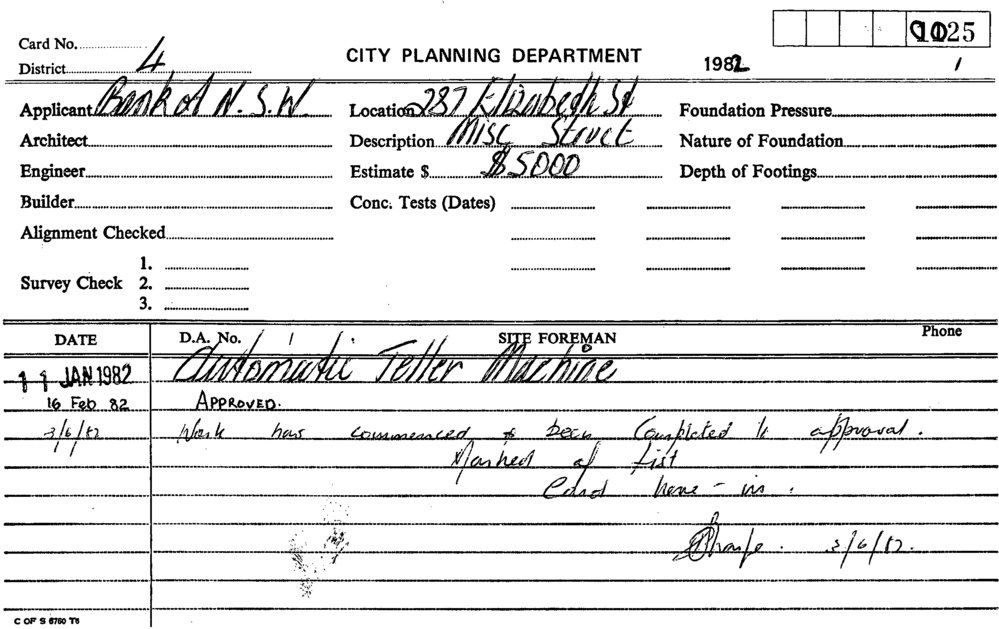 25
Card No.
District 4
CITY PLANNING DEPARTMENT
1982 1
Applicant Bank of N.S.W. Location 287 Elizabeth St Foundation Pressure
Architect Description Misc Struct Nature of Foundation
Engineer Estimate $ $5000 Depth of Footings
Builder Conc. Tests (Dates)
Alignment Checked
1.
Survey Check 2.
3.
DATE D.A. No. SITE FOREMAN Phone
11 JAN 1982 Automatic Teller Machine
16 Feb 82 APPROVED.
3/6/82 Work has commenced & been Completed to approval.
Marked of list
Card here-in.
3/6/82.
C OF S 6760 T6